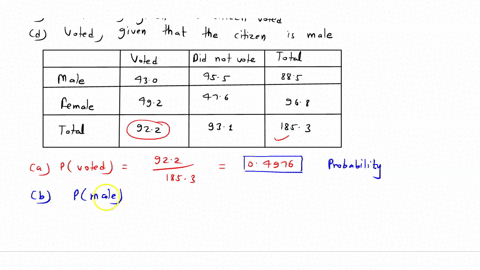 given voted
(d) Voted, given that the citizen is male
Voted Did not vote Total
Male 43.0 45.5 88.5
Female 49.2 47.6 96.8
Total 92.2 93.1 185.3
(a) P(voted) = 92.2 / 185.3 = 0.4976 Probability
(b) P(male)